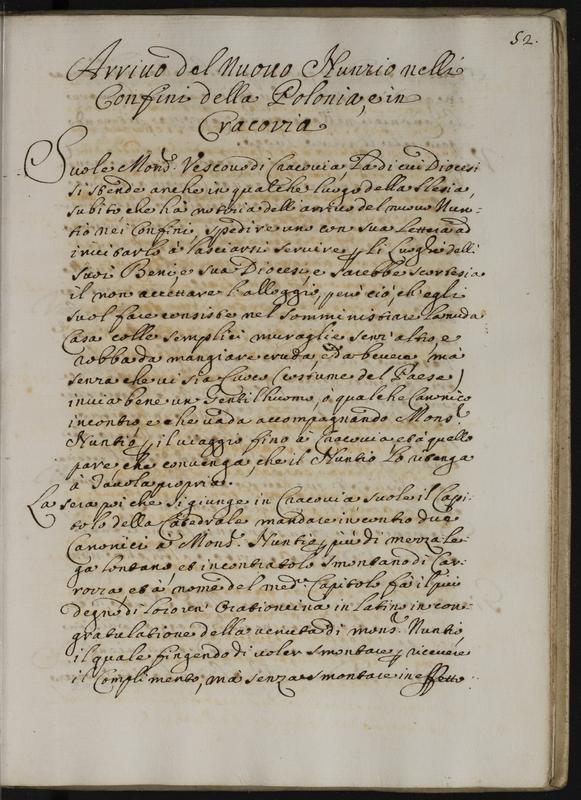 52.
Arrivo del Nuovo Nunzio nelli
Confini della Polonia, e in
Cracovia
Suole Mons.r Vescovo di Cracovia, la di cui Diocesi
si stende anche in qualche luogo della Slesia,
subito che hà notizia dell'arrivo del nuovo Nun-
tio nei Confini, spedire uno con sua Lettera ad
invitarlo à lasciarsi servire p li Luoghi delli
suoi Beni, e sua Diocesi, e sarebbe scortesia
il non accettare l'alloggio, però ciò, ch'egli
suol fare consiste nel somministrare la nuda
Casa colle semplici muraglie senz'altro, e
robba da mangiare cruda, e da bevere, mà
senza che vi sia Cuoco (costume del Paese)
invia bene un Gentilhuomo, o qualche Canonico
incontro e che vada accompagnando Mons.r
Nuntio p il viaggio fino à Cracovia et à quello
pare che convenga, che il Nuntio lo ritenga
à Tavola propria.
La sera poi che si giunge in Cracovia suole il Capi-
tolo della Catedrale mandare incontro due
Canonici à Mons.r Nuntio p più di mezza le-
ga lontano, et incontratolo smontano di Car-
rozza, et à nome del med.o Capitolo fà il più
degno di loro un' Orationcina in latino in con-
gratulatione della venuta di mons.r Nuntio,
il quale fingendo di voler smontare p ricevere
il Complimento, mà senza smontare in effetto